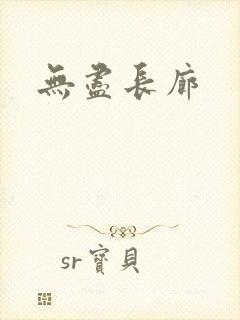 無盡長廊
sr寶貝